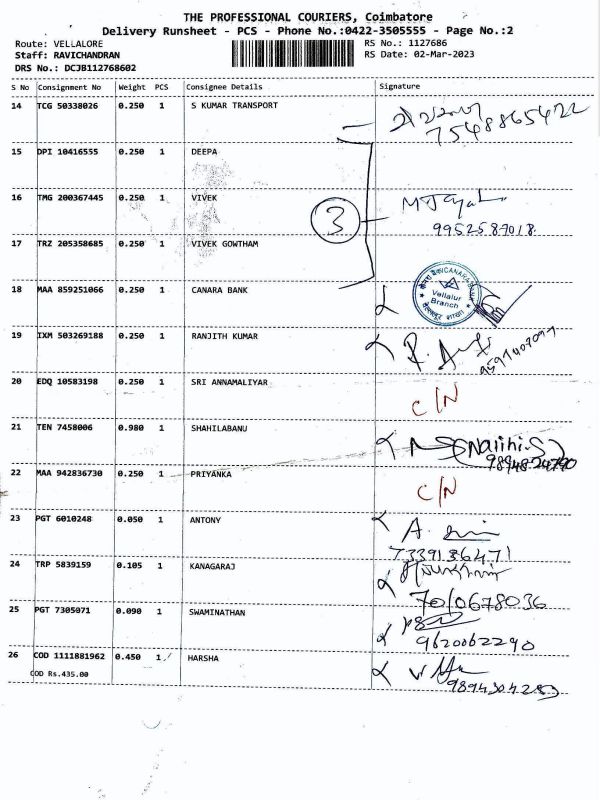 THE PROFESSIONAL COURIERS, Coimbatore
Delivery Runsheet - PCS - Phone No.:0422-3505555 - Page No.:2
Route: VELLALORE
RS No.: 1127686
Staff: RAVICHANDRAN
RS Date: 02-Mar-2023
DRS No.: DCJB112768602
S No Consignment No Weight PCS Consignee Details Signature
14 TCG 50338026 0.250 1 S KUMAR TRANSPORT
7548865422
15 DPI 10416555 0.250 1 DEEPA
16 TMG 200367445 0.250 1 VIVEK
3
9952587018
17 TRZ 205358685 0.250 1 VIVEK GOWTHAM
18 MAA 859251066 0.250 1 CANARA BANK
CANARA BANK
Vellalur
Branch
19 IXM 503269188 0.250 1 RANJITH KUMAR
20 EDQ 10583198 0.250 1 SRI ANNAMALIYAR
C/N
21 TEN 7458006 0.980 1 SHAHILABANU
98948-24790
22 MAA 942836730 0.250 1 PRIYANKA
C/N
23 PGT 6010248 0.050 1 ANTONY
7339136471
24 TRP 5839159 0.105 1 KANAGARAJ
7010678036
25 PGT 7305071 0.090 1 SWAMINATHAN
9620062290
26 COD 1111881962 0.450 1 HARSHA
COD Rs.435.00
9894304253